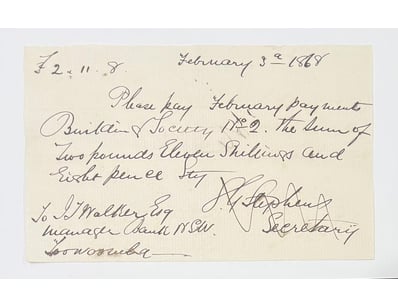 £ 2 . 11 . 8
February 3ᵃ 1868
Please pay February payment
Building Society No 2. The Sum of
Two pounds Eleven Shillings and
Eight pence Stg
Stephens
Secretary
To J J Walker Esq
Manager Bank NSW.
Toowoomba